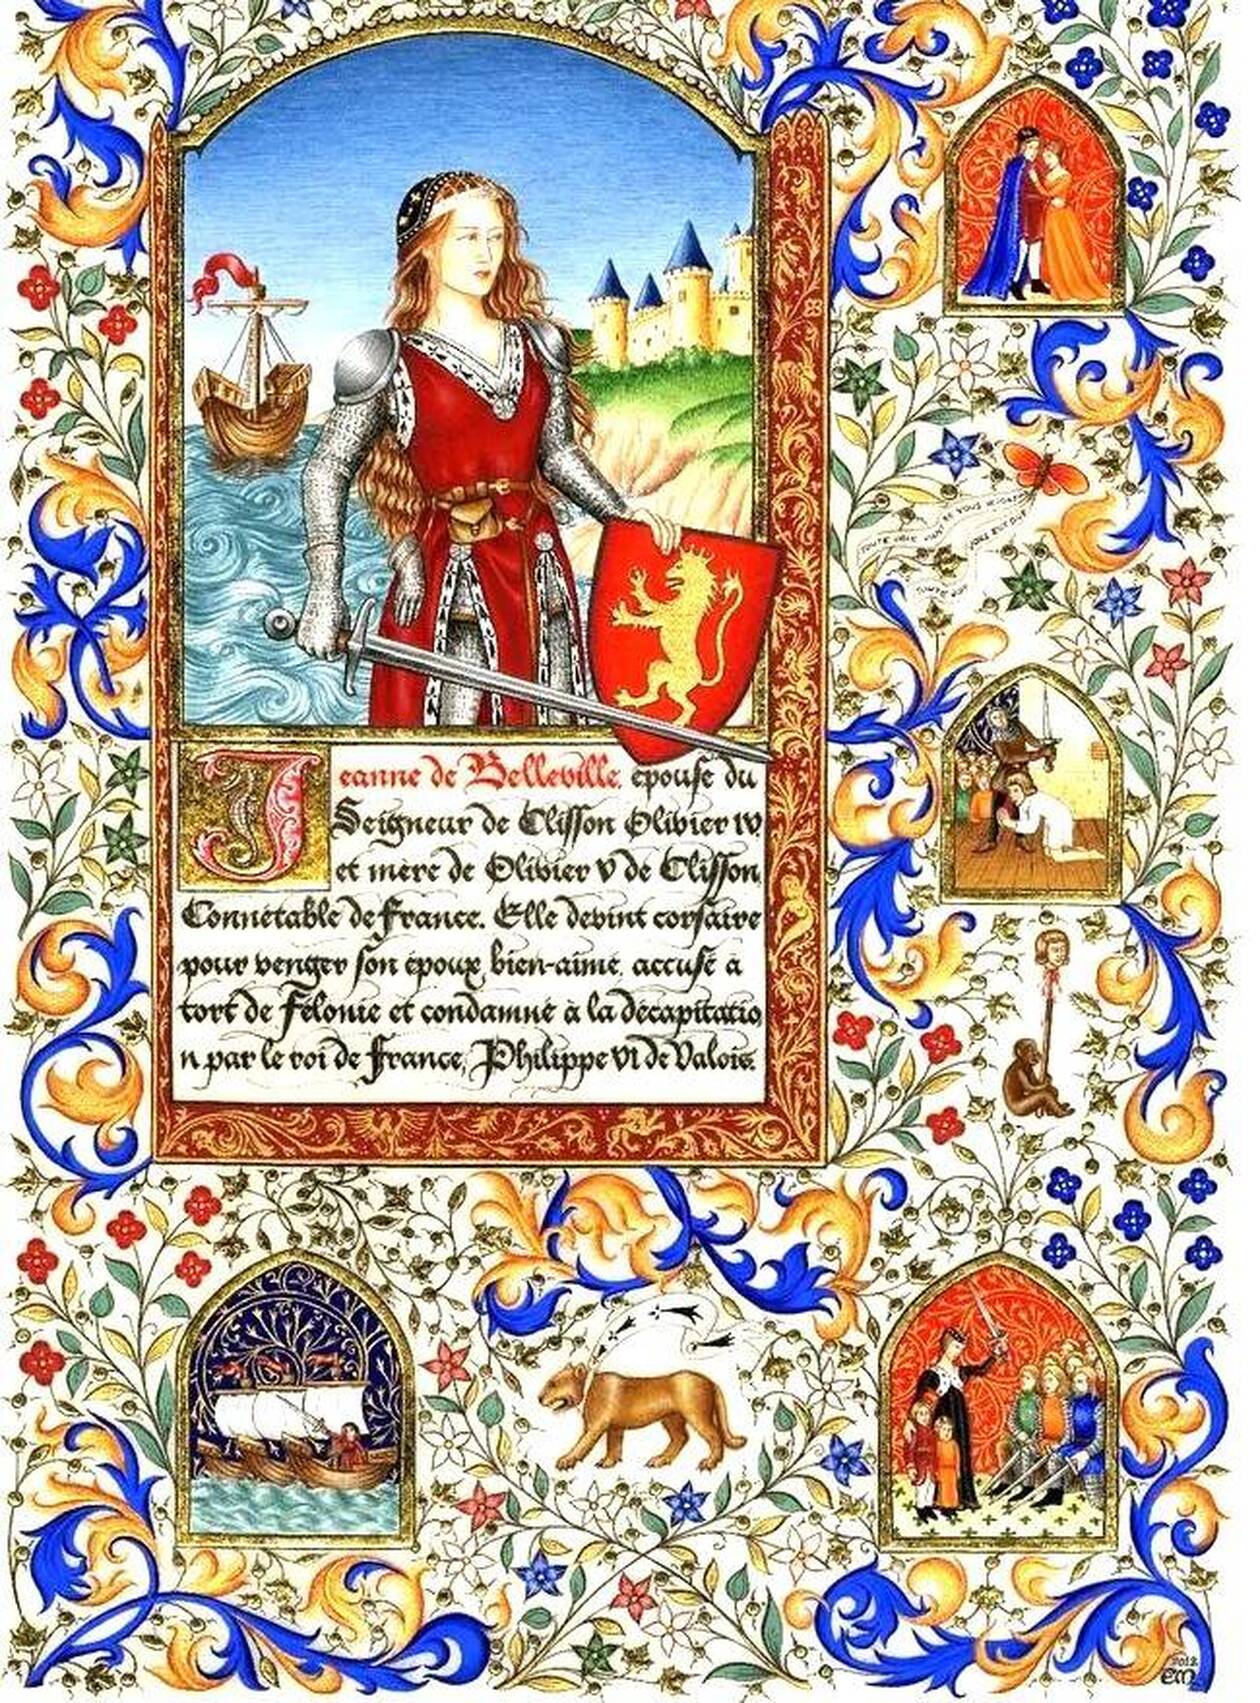 Jeanne de Belleville, épouse du
Seigneur de Clisson Olivier IV
et mère de Olivier V de Clisson
Connétable de France. Elle devint corsaire
pour venger son époux bien-aimé, accusé à
tort de Félonie et condamné à la décapitatio
n par le roi de France, Philippe VI de Valois.
2012
EM